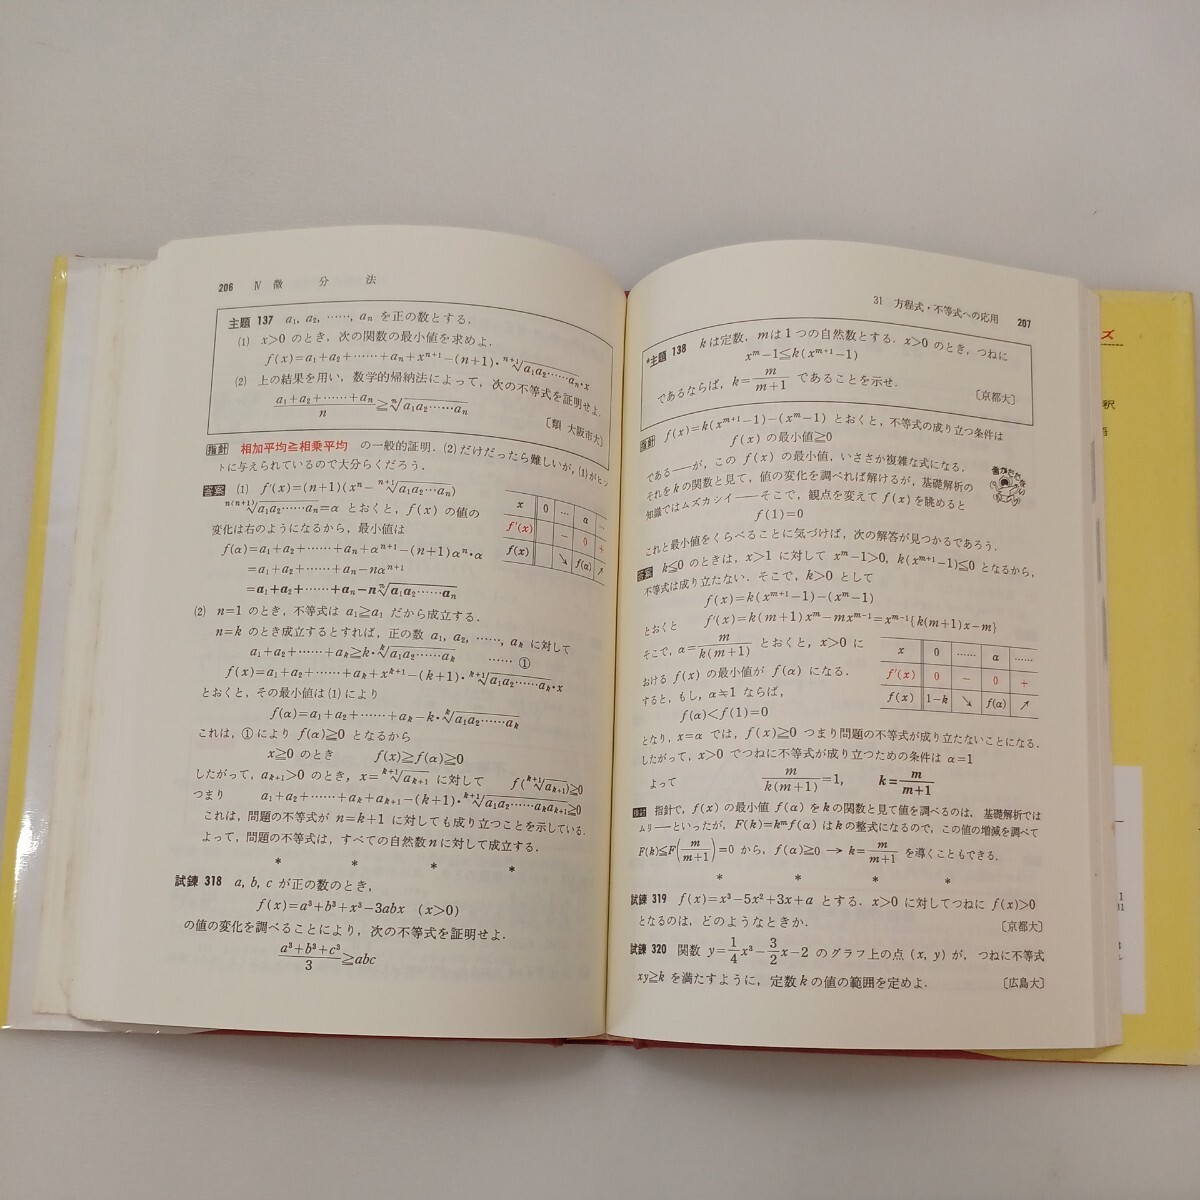 206 Ⅳ 微 分 法
主題 137 a₁, a₂, ……, aₙ を正の数とする.
(1) x>0 のとき, 次の関数の最小値を求めよ.
f(x)=a₁+a₂+……+aₙ+xⁿ⁺¹−(n+1)・ⁿ⁺¹√(a₁a₂……aₙ)・x
(2) 上の結果を用い, 数学的帰納法によって, 次の不等式を証明せよ.
(a₁+a₂+……+aₙ)/n ≧ ⁿ√(a₁a₂……aₙ)
〔類 大阪市大〕
指針 相加平均≧相乗平均 の一般的証明. (2)だけだったら難しいが, (1)がヒン
トに与えられているので大分らくだろう.
答案 (1) f′(x)=(n+1)(xⁿ−ⁿ⁺¹√(a₁a₂…aₙ))
ⁿ⁽ⁿ⁺¹⁾√(a₁a₂……aₙ)=α とおくと, f(x) の値の
変化は右のようになるから, 最小値は
x 0 … α …
f′(x) − 0 +
f(x) ↘ f(α) ↗
f(α)=a₁+a₂+……+aₙ+αⁿ⁺¹−(n+1)αⁿ・α
=a₁+a₂+……+aₙ−nαⁿ⁺¹
=a₁+a₂+……+aₙ−n ⁿ√(a₁a₂……aₙ)
(2) n=1 のとき, 不等式は a₁≧a₁ だから成立する.
n=k のとき成立するとすれば, 正の数 a₁, a₂, ……, aₖ に対して
a₁+a₂+……+aₖ≧k・ᵏ√(a₁a₂……aₖ) …… ①
f(x)=a₁+a₂+……+aₖ+xᵏ⁺¹−(k+1)・ᵏ⁺¹√(a₁a₂……aₖ)・x
とおくと, その最小値は(1)により
f(α)=a₁+a₂+……+aₖ−k・ᵏ√(a₁a₂……aₖ)
これは, ①により f(α)≧0 となるから
x≧0 のとき f(x)≧f(α)≧0
したがって, aₖ₊₁>0 のとき, x=ᵏ⁺¹√(aₖ₊₁) に対して f(ᵏ⁺¹√(aₖ₊₁))≧0
つまり a₁+a₂+……+aₖ+aₖ₊₁−(k+1)・ᵏ⁺¹√(a₁a₂……aₖaₖ₊₁)≧0
これは, 問題の不等式が n=k+1 に対しても成り立つことを示している.
よって, 問題の不等式は, すべての自然数nに対して成立する.
* * * *
試練 318 a, b, c が正の数のとき,
f(x)=a³+b³+x³−3abx (x>0)
の値の変化を調べることにより, 次の不等式を証明せよ.
(a³+b³+c³)/3 ≧abc
31 方程式・不等式への応用 207
*主題 138 kは定数, mは1つの自然数とする. x>0 のとき, つねに
xᵐ−1≦k(xᵐ⁺¹−1)
であるならば, k=m/(m+1) であることを示せ.
〔京都大〕
指針 f(x)=k(xᵐ⁺¹−1)−(xᵐ−1) とおくと, 不等式の成り立つ条件は
f(x) の最小値≧0
である——が, この f(x) の最小値, いささか複雑な式になる.
それをkの関数と見て, 値の変化を調べれば解けるが, 基礎解析の
知識ではムズカシイ——そこで, 観点を変えて f(x) を眺めると
f(1)=0
これと最小値をくらべることに気づけば, 次の解答が見つかるであろう.
答案 k≦0 のときは, x>1 に対して xᵐ−1>0, k(xᵐ⁺¹−1)≦0 となるから,
不等式は成り立たない. そこで, k>0 として
f(x)=k(xᵐ⁺¹−1)−(xᵐ−1)
とおくと f′(x)=k(m+1)xᵐ−mxᵐ⁻¹=xᵐ⁻¹{k(m+1)x−m}
そこで, α=m/(k(m+1)) とおくと, x>0 に
おける f(x) の最小値が f(α) になる.
すると, もし, α≒1 ならば,
f(α)<f(1)=0
x 0 …… α ……
f′(x) 0 − 0 +
f(x) 1−k ↘ f(α) ↗
となり, x=α では, f(x)≧0 つまり問題の不等式が成り立たないことになる.
したがって, x>0 でつねに不等式が成り立つための条件は α=1
よって m/(k(m+1))=1, k=m/(m+1)
検討 指針で, f(x) の最小値 f(α) をkの関数と見て値を調べるのは, 基礎解析では
ムリ——といったが, F(k)=kᵐf(α) はkの整式になるので, この値の増減を調べて
F(k)≦F(m/(m+1))=0 から, f(α)≧0 → k=m/(m+1) を導くこともできる.
* * * *
試練 319 f(x)=x³−5x²+3x+a とする. x>0 に対してつねに f(x)>0
となるのは, どのようなときか. 〔京都大〕
試練 320 関数 y=1/4x³−3/2x−2 のグラフ上の点 (x, y) が, つねに不等式
xy≧k を満たすように, 定数kの値の範囲を定めよ. 〔広島大〕
ズ
釈
語